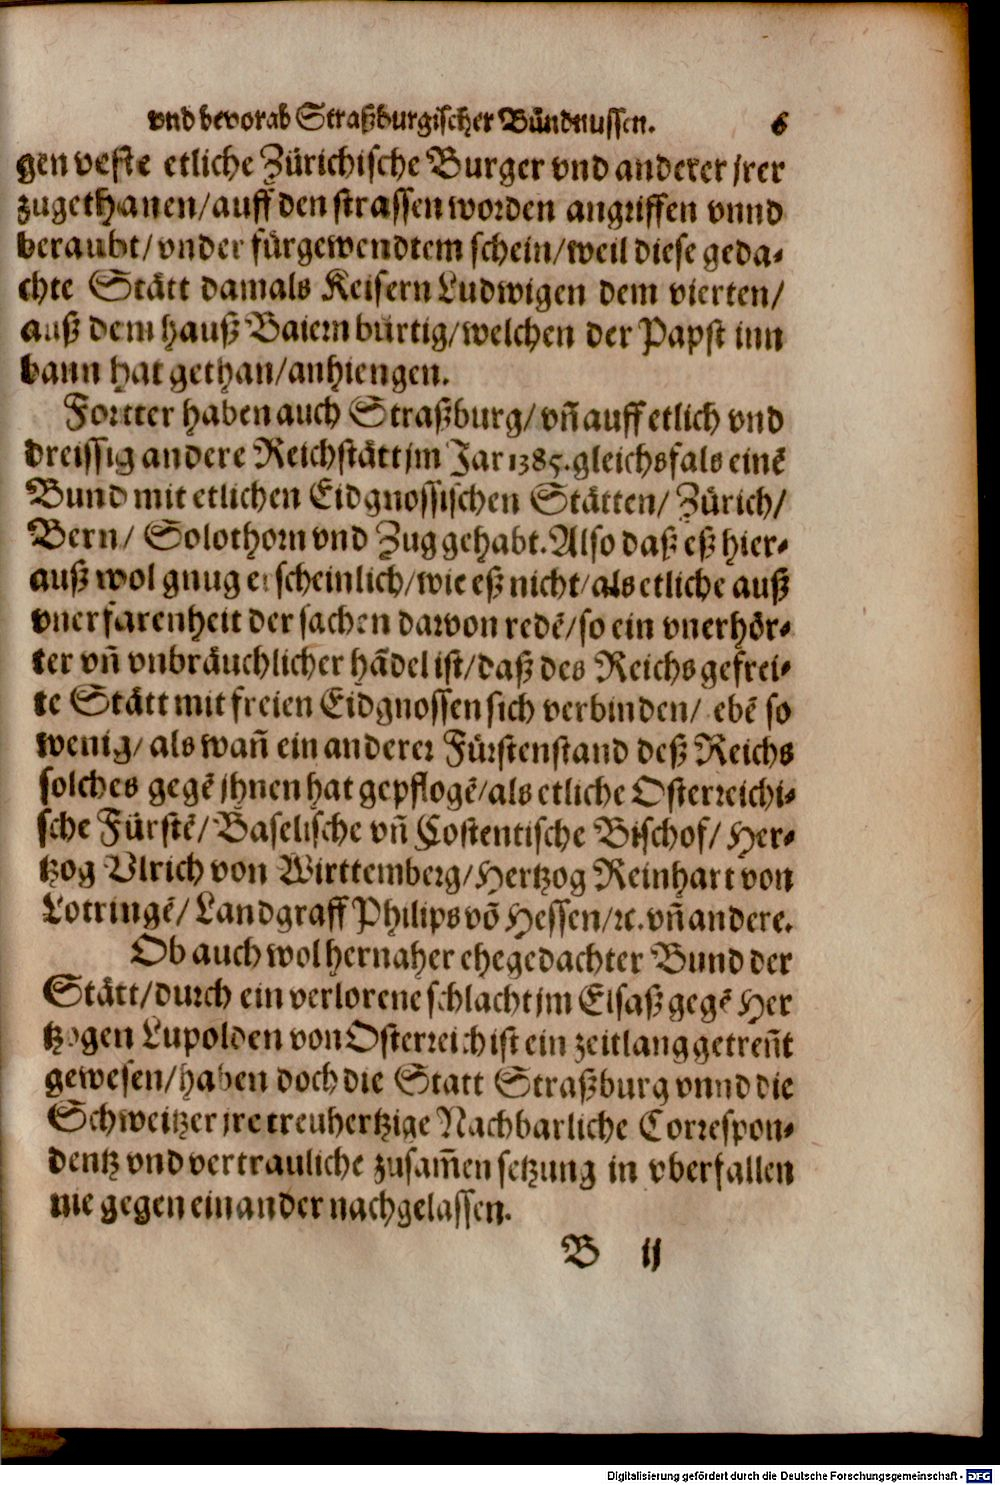 vnd bevorab Straßburgischer Bündnussen. 6
gen veste etliche Zürichische Burger vnd anderer jrer
zugethanen/auff den strassen worden angriffen vnnd
beraubt/vnder fürgewendtem schein/weil diese geda⸗
chte Stätt damals Keisern Ludwigen dem vierten/
auß dem hauß Baiern bürtig/welchen der Papst inn
bann hat gethan/anhiengen.
Fortter haben auch Straßburg/vñ auff etlich vnd
dreissig andere Reichstätt jm Jar 1385. gleichsfals einẽ
Bund mit etlichen Eidgnossischen Stätten/Zürich/
Bern/ Solothorn vnd Zug gehabt. Also daß eß hier⸗
auß wol gnug erscheinlich/wie eß nicht/als etliche auß
vnerfarenheit der sachen darvon redẽ/so ein vnerhör⸗
ter vñ vnbräuchlicher hãdel ist/daß des Reichs gefrei⸗
te Stätt mit freien Eidgnossen sich verbinden/ ebẽ so
wenig/als wañ ein anderer Fürstenstand deß Reichs
solches gegẽ jhnen hat gepflogẽ/als etliche Osterreichi⸗
sche Fürstẽ/Baselische vñ Costentische Bischof/ Her⸗
tzog Vlrich von Wirttemberg/Hertzog Reinhart von
Lotringẽ/Landgraff Philips võ Hessen/ꝛc. vñ andere.
Ob auch wol hernaher ehegedachter Bund der
Stätt/durch ein verlorene schlacht jm Elsaß gegẽ Her
tzogen Lupolden von Osterreich ist ein zeitlang getreñt
gewesen/haben doch die Statt Straßburg vnnd die
Schweitzer jre treuhertzige Nachbarliche Correspon⸗
dentz vnd vertrauliche zusam̃en setzung in vberfallen
nie gegen einander nachgelassen.
B ij
Digitalisierung gefördert durch die Deutsche Forschungsgemeinschaft - DFG